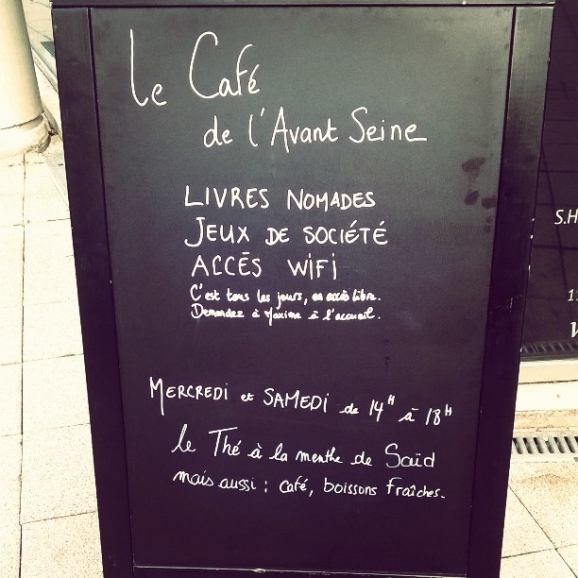 Le Café
de l'Avant Seine
LIVRES NOMADES
JEUX DE SOCIÉTÉ
ACCÉS WiFi
C'est tous les jours, en accès libre.
Demandez à Maxime à l'accueil.
MERCREDI et SAMEDI de 14H à 18H
le Thé à la menthe de Saïd
mais aussi : café, boissons fraîches.
S.H